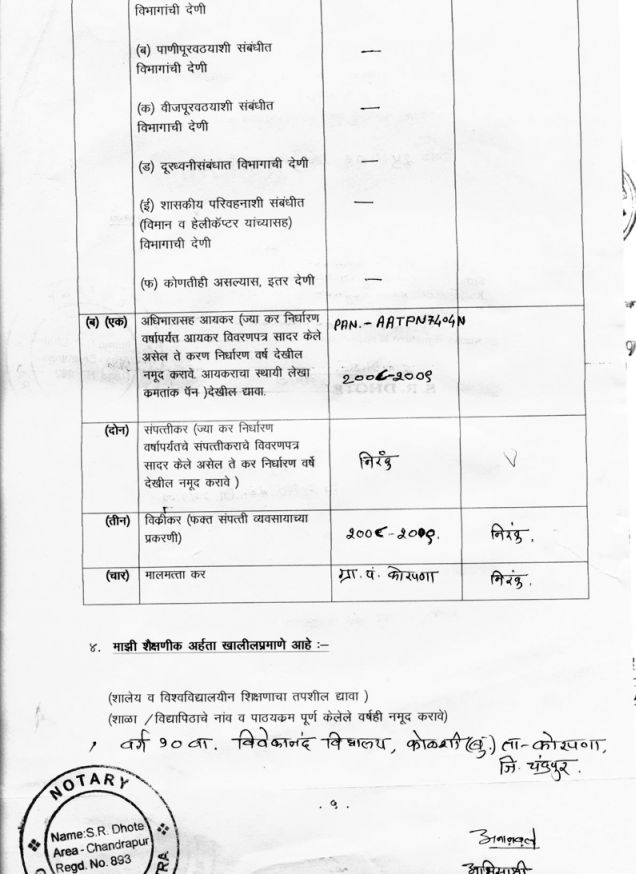 विभागांची देणी
(ब) पाणीपूरवठयाशी संबंधीत —
विभागांची देणी
(क) वीजपूरवठयाशी संबंधीत —
विभागाची देणी
(ड) दूरध्वनीसंबंधात विभागाची देणी —
(ई) शासकीय परिवहनाशी संबंधीत —
(विमान व हेलीकॅप्टर यांच्यासह)
विभागाची देणी
(फ) कोणतीही असल्यास, इतर देणी —
(ब) (एक) अधिभारासह आयकर (ज्या कर निर्धारण PAN.- AATPN7404N
वर्षापर्यंत आयकर विवरणपत्र सादर केले
असेल ते करण निर्धारण वर्ष देखील
नमूद करावे. आयकराचा स्थायी लेखा २००८-२००९
कमतांक पॅन )देखील द्यावा.
(दोन) संपत्तीकर (ज्या कर निर्धारण
वर्षापर्यंतचे संपत्तीकराचे विवरणपत्र
सादर केले असेल ते कर निर्धारण वर्षे निरंक
देखील नमूद करावे )
(तीन) विक्रीकर (फक्त संपत्ती व्यवसायाच्या
प्रकरणी) २००८-२००९. निरंक.
(चार) मालमत्ता कर ग्रा. पं. कोरपणा निरंक.
४. माझी शैक्षणीक अर्हता खालीलप्रमाणे आहे :–
(शालेय व विश्वविद्यालयीन शिक्षणाचा तपशील द्यावा )
(शाळा /विद्यापिठाचे नांव व पाठयकम पूर्ण केलेले वर्षही नमूद करावे)
, वर्ग १० वा. विवेकानंद विद्यालय, कोळशी (बु.) ता-कोरपणा,
जि. चंद्रपूर.
. ९ .
NOTARY
Name:S.R. Dhote
Area - Chandrapur
Regd. No. 893